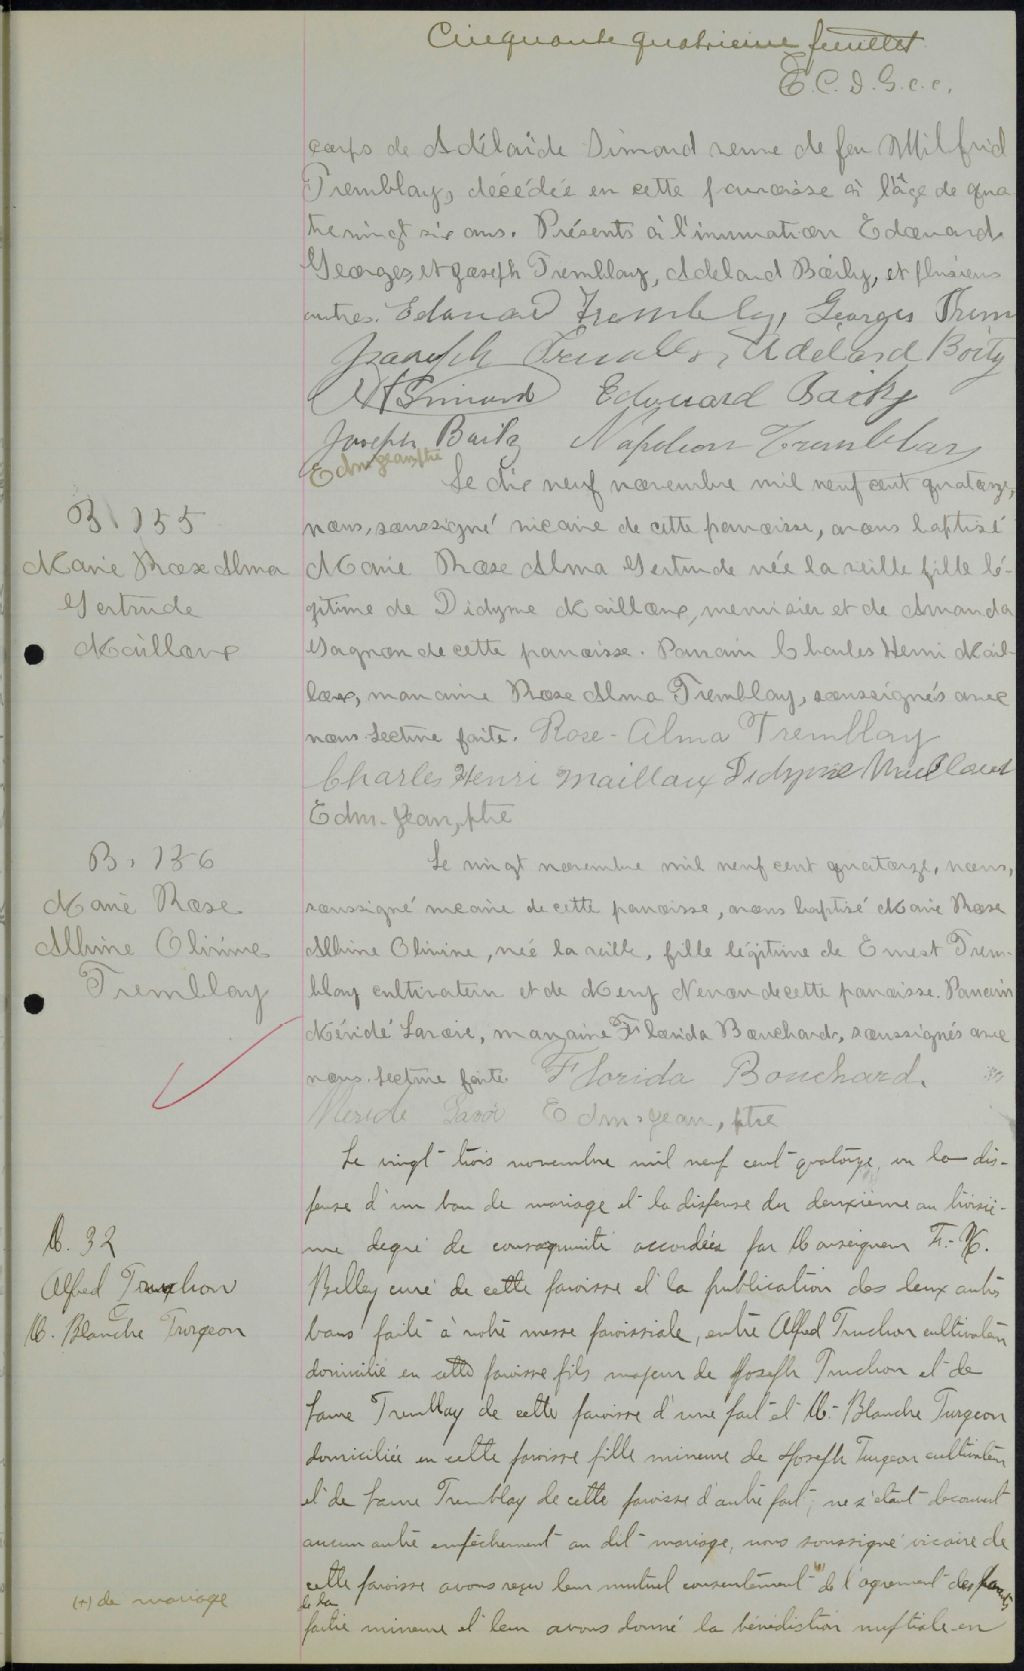 Cinquante quatrième feuillet
E.C.D.G.c.c.
corps de Adélaïde Simard veuve de feu Wilfrid
Tremblay, décédée en cette paroisse à l'âge de qua
tre vingt six ans. Présents à l'inhumation Edouard
Georges, et Joseph Tremblay, Adelard Boily, et plusieurs
autres. Edouard Tremblay, Georges Trem
Joseph Tremblay, Adélard Boily
Simard Edouard Boily
Joseph Boily Napoléon Tremblay
Edm. Jean, ptre
B. 155
Marie Rose Alma
Gertrude
Mailloux
Le dix neuf novembre mil neuf cent quatorze,
nous, soussigné vicaire de cette paroisse, avons baptisé
Marie Rose Alma Gertrude née la veille fille lé-
gitime de Didyme Mailloux, menuisier et de Amanda
Gagnon de cette paroisse. Parrain Charles Henri Mail-
loux, marraine Rose Alma Tremblay, soussignés avec
nous. Lecture faite. Rose-Alma Tremblay
Charles Henri Maillaux Didyme Mailloux
Edm. Jean, ptre
B. 156
Marie Rose
Albine Olivine
Tremblay
Le vingt novembre mil neuf cent quatorze, nous,
soussigné vicaire de cette paroisse, avons baptisé Marie Rose
Albine Olivine, née la veille, fille légitime de Ernest Trem-
blay cultivateur et de Mery Neron de cette paroisse. Parrain
Méridé Savoie, marraine Florida Bouchard, soussignés avec
nous. Lecture faite. Florida Bouchard.
Méridé Savoi Edm. Jean, ptre
M. 32
Alfred Truchon
&
M. Blanche Turgeon
Le vingt trois novembre mil neuf cent quatorze, vu la dis-
pense d'un ban de mariage et la dispense du deuxième au troisiè-
me degré de consaquinité accordées par Monseigneur F.-X.
Belley curé de cette paroisse et la publication des deux autres
bans faite à notre messe paroissiale, entre Alfred Truchon cultivateur
domicilié en cette paroisse fils majeur de Joseph Truchon et de
Laure Tremblay de cette paroisse d'une part et M. Blanche Turgeon
domiciliée en cette paroisse fille mineure de Joseph Turgeon cultivateur
et de Laure Tremblay de cette paroisse d'autre part; ne s'étant découvert
aucun autre empêchement au dit mariage, nous soussigné vicaire de
cette paroisse avons reçu leur mutuel consentement (+) de l'agrément des parents
de la
partie mineure et leur avons donné la bénédiction nuptiale en
(+) de mariage